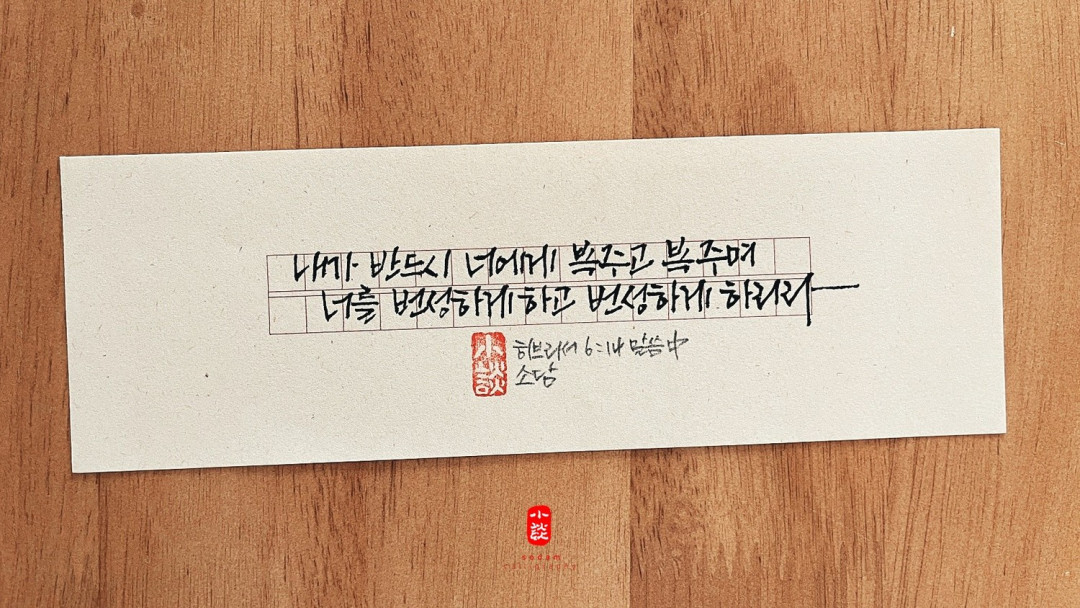 내가 반드시 너에게 복주고 복주며
너를 번성하게 하고 번성하게 하리라
小談
히브리서 6:14 말씀 中
소담
小談
sodam
calligraphy